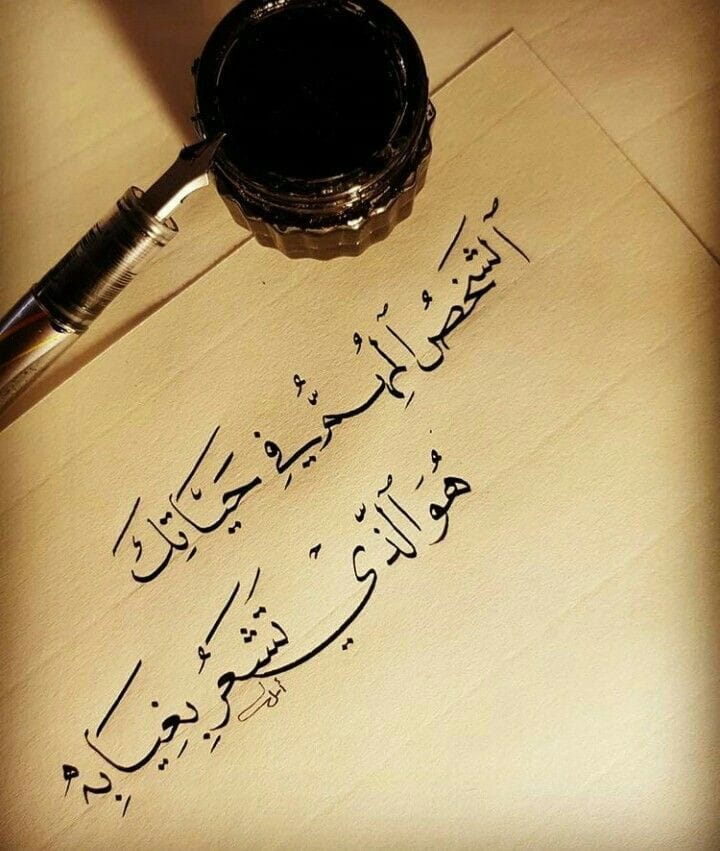 ٱلشَّخصُ ٱلمُهِمُّ فِي حَيَاتِكَ
هُوَ ٱلَّذِي تَشعُرُ بِغِيَابِهِ